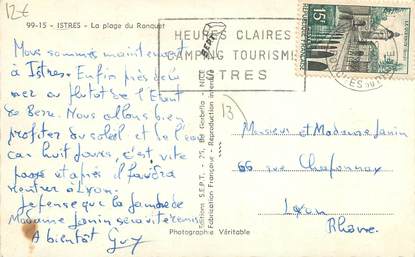 12€
99-15 - ISTRES - La plage du Ranquet
HEURES CLAIRES
CAMPING TOURISME
ISTRES
15F
Nous sommes maintenant
à Istres. Enfin près de la
mer ou plutôt de l'Etang
de Berre. Nous allons bien
profiter du soleil et de l'eau
car huit jours, c'est vite
passé et après il faudra
rentrer à Lyon.
Je pense que la jambe de
Madame Janin sera vite remise.
A bientôt Guy
13
Monsieur et Madame Janin
66 rue Chaponnay
Lyon
Rhône.
Editions S.E.P.T.
Fabrication Française - Reproduction interdite
Photographie Véritable